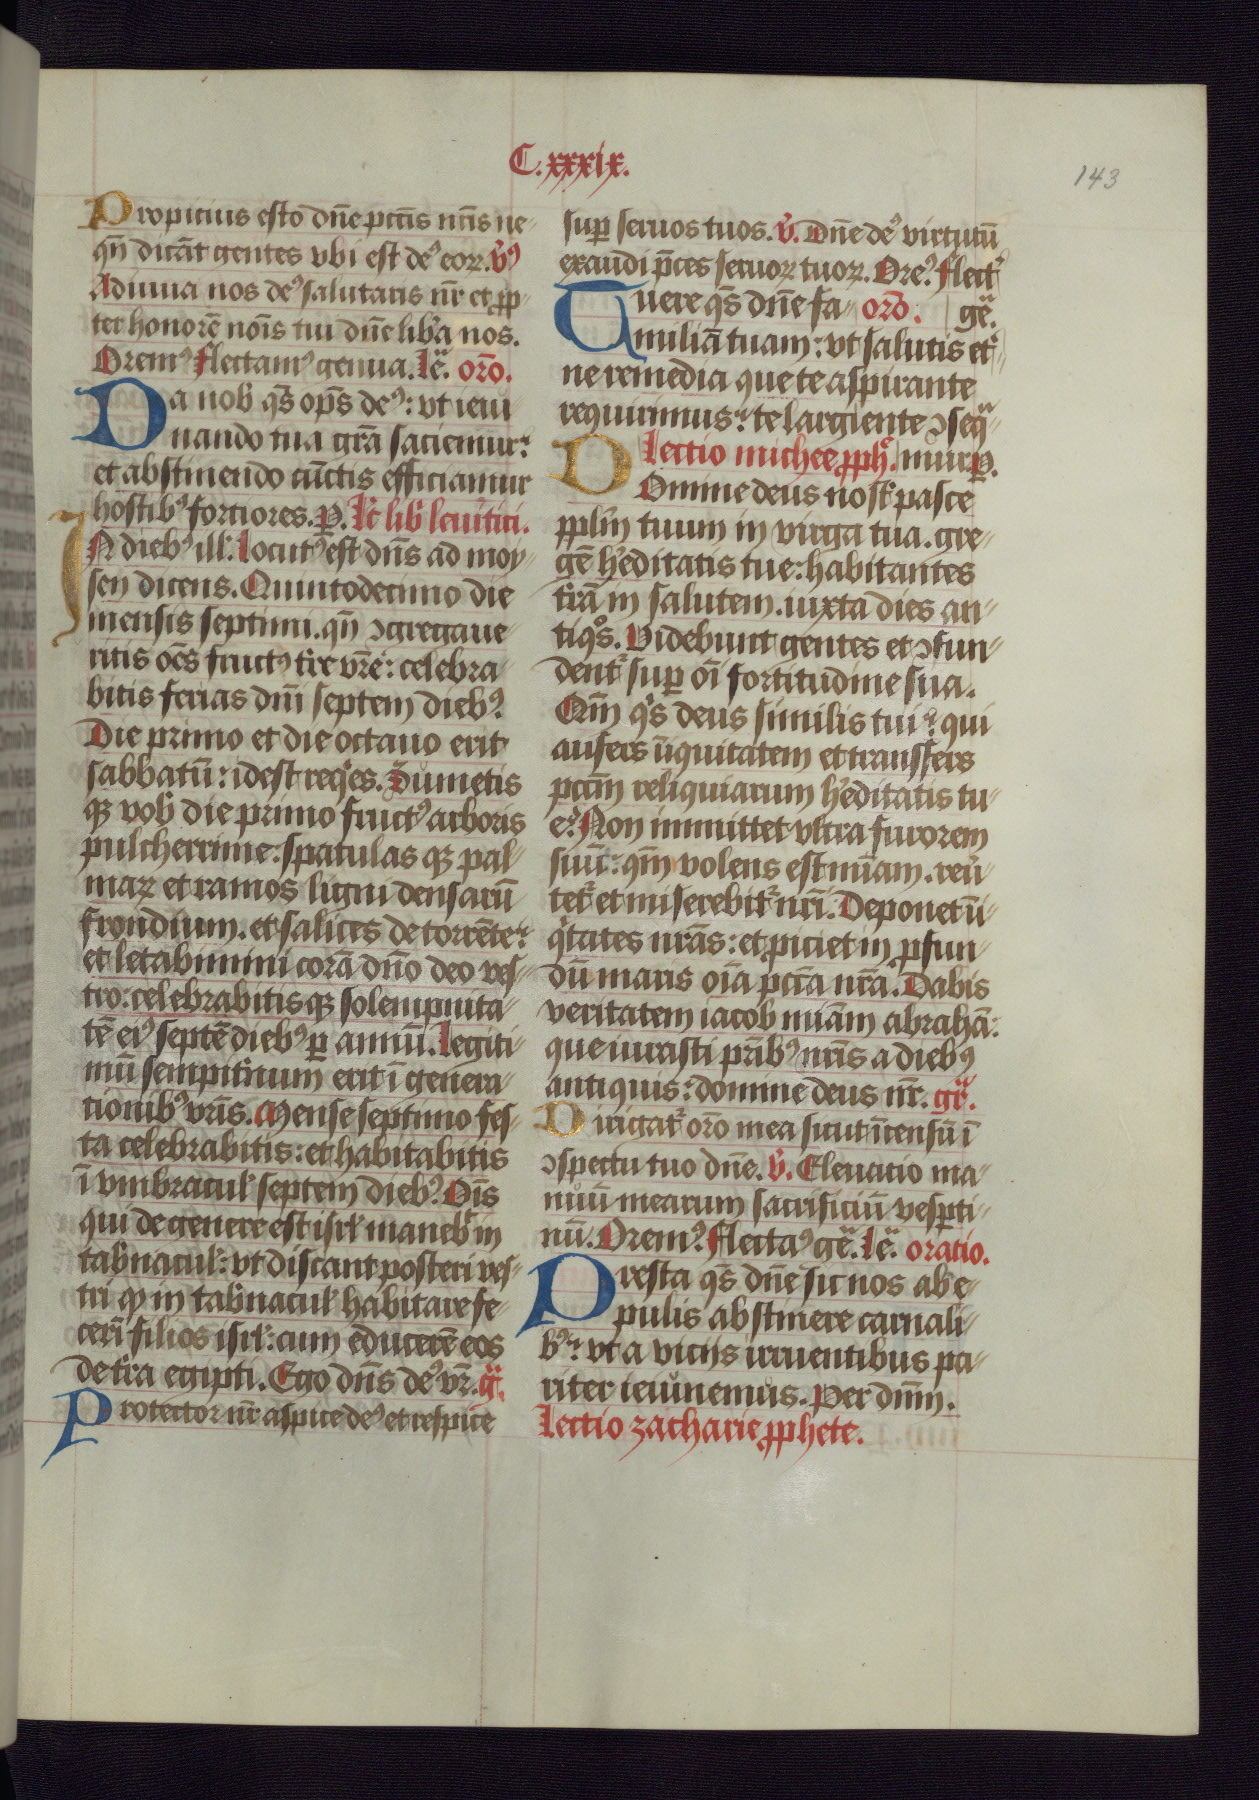 C.xxxix.
143
Propicius esto dn̄e pctīs nr̄is ne-
qn̄ dicāt gentes vbi est deꝰ eoꝝ. v̓ꝰ
Adiuua nos deꝰ salutaris nr̄ et ꝓp
ter honorē noīs tui dn̄e lib̓a nos.
Oremꝰ flectamꝰ genua. Lē. orō.
Da nob̓ qs̄ op̄s deꝰ: vt ieiu
nando tua grā saciemur:
et abstinendo cūctis efficiamur
hostibꝰ forciores. P̱. Lc̄ lib̓ leuitici.
IN diebꝰ ill̓. Locutꝰ est dn̄s ad moy-
sen dicens. Quintodecimo die
mensis septimi. qn̄ ↄgregaue-
ritis oēs fructꝰ tr̄e vr̄e: celebra-
bitis ferias dn̄i septem diebꝰ.
Die primo et die octauo erit
sabbatū: idest req̓es. Sumetis
qꝫ vob̓ die primo fructꝰ arboris
pulcherrime: spatulas qꝫ pal-
maꝝ et ramos ligni densarū
frondium. et salices de torrēte:
et letabimini corā dn̄o deo ves-
tro: celebrabitis qꝫ solempnita-
tē eiꝰ septē diebꝰ ꝑ annū. Legiti-
mū sempit̓num erit ī genera-
tionibꝰ vr̄is. Mense septimo fes-
ta celebrabitis: et habitabitis
ī vmbracul̓ septem diebꝰ. Oīs
qui de genere est isrl̓ maneb̓ in
tab̓nacul̓: vt discant posteri ves-
tri qꝙ in tab̓nacul̓ habitare fe-
cerī filios isrl̓: cum educerē eos
de t̓ra egipti. Ego dn̄s deꝰ vr̄. gr̄.
Protector nr̄ aspice deꝰ et respice
suꝑ seruos tuos. v̓. Dn̄e deꝰ virtutū
exaudi p̄ces seruoꝝ tuoꝝ. Oreꝰ flect̓
Tuere qs̄ dn̄e fa- orō. gē.
miliā tuam: vt salutis et̓-
ne remedia que te aspirante
requirimus: te largiente ↄseq̄-
Lectio michee ꝓph̓. mur P̱.
Domine deus nost̓ pasce
pplm̄ tuum in virga tua. gre-
gē h̓editatis tue: habitantes
t̓rā in salutem. iuxta dies an-
tiq̓os. Videbunt gentes et ↄfun-
dent̓ suꝑ oī fortitudine sua.
Qm̄ q̓s deus similis tui: qui
aufers īiquitatem et transfers
pctm̄ reliquiarum h̓editatis tu-
e: Non immittet vltra furorem
suū: qm̄ volens est mīam. reu̓-
tet̓ et miserebit̓ nr̄i. Deponet īi-
q̓tates nr̄as: et ꝓiciet in ꝓfun-
dū maris oīa pctā nr̄a. Dabis
veritatem iacob mīam abrahā:
que iurasti pr̄ibꝰ nr̄is a diebꝰ
antiquis: domine deus nr̄. gr̄.
Dirigat̓ orō mea sicut īcensū ī
ↄspectu tuo dn̄e. v̓. Eleuatio ma-
nuū mearum sacrificiū vesꝑti-
nū. Oremꝰ. flectaꝰ gē. Lē. oratio.
Presta qs̄ dn̄e sic nos ab e-
pulis abstinere carnali-
bꝰ: vt a vicijs irruentibus pa-
riter ieiunemus. Per dn̄m.
Lectio zacharie ꝓphete.